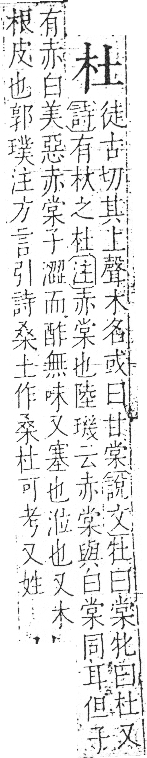 杜
徒古切其上聲木名或曰甘棠說文牡曰棠牝曰杜又
詩有杕之杜注赤棠也陸璣云赤棠與白棠同耳但子
有赤白美惡赤棠子澀而酢無味又塞也澁也又木
根皮也郭璞注方言引詩桑土作桑杜可考又姓